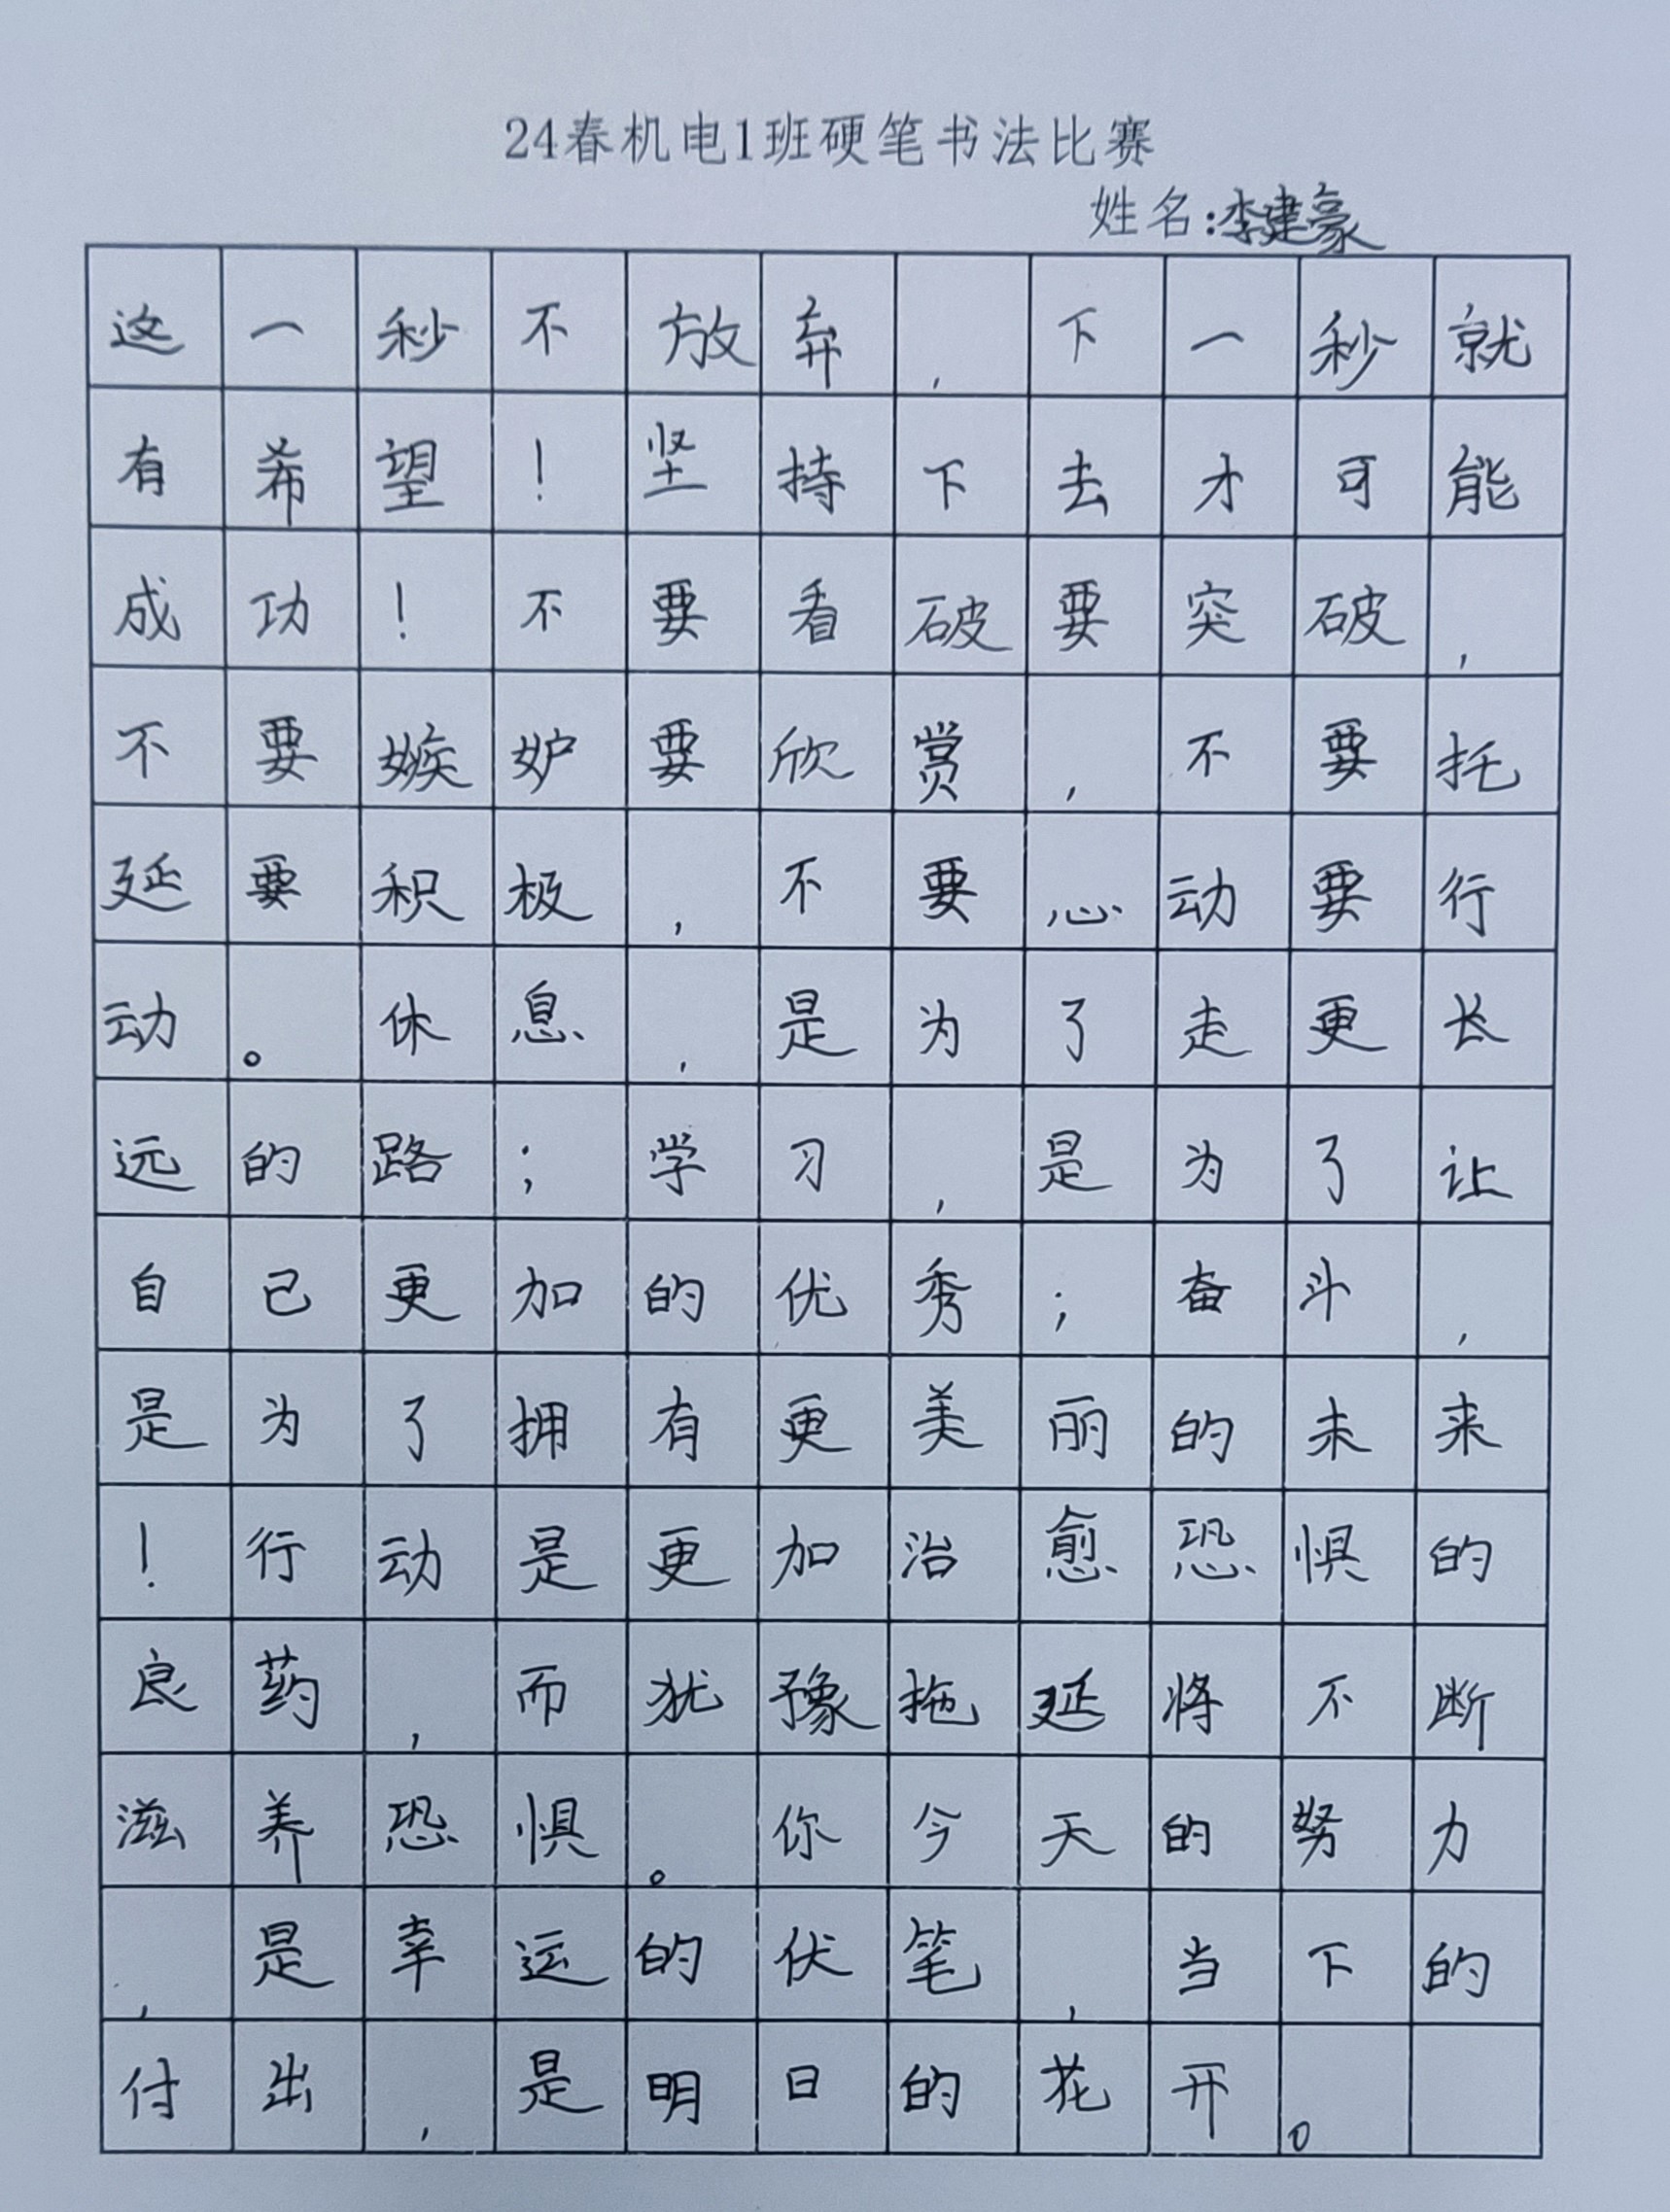 24春机电1班硬笔书法比赛
姓名:李建豪
这一秒不放弃,下一秒就
有希望!坚持下去才可能
成功!不要看破要突破,
不要嫉妒要欣赏,不要托
延要积极,不要心动要行
动。休息,是为了走更长
远的路;学习,是为了让
自己更加的优秀;奋斗,
是为了拥有更美丽的未来
!行动是更加治愈恐惧的
良药,而犹豫拖延将不断
滋养恐惧。你今天的努力
,是幸运的伏笔,当下的
付出,是明日的花开。